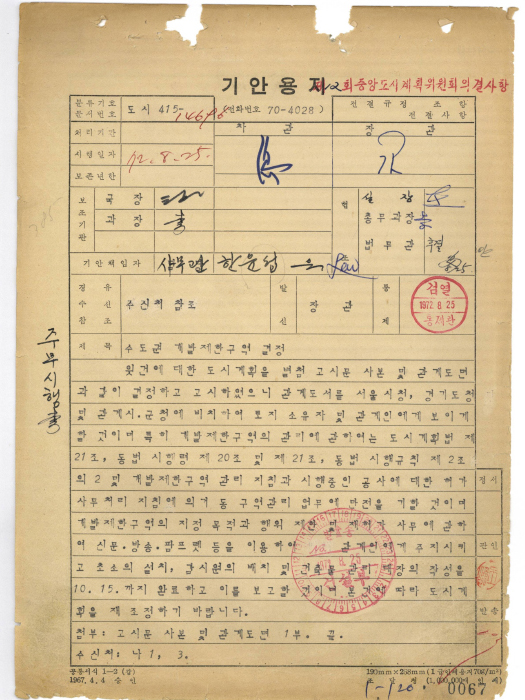 기안용지
제12회중앙도시계획위원회의결사항
분류기호
문서번호
도시 415-
14676
(전화번호 70-4028)
전결규정 조 항
전결사항
처리기간
차 관
장 관
시행일자
72. 8. 25.
보존년한
보조기관
국장
과장
협
실장
총무과장
법무관
기안책임자
사무관
경유
수신
참조
주신처 참조
발신
장 관
통제
검열
1972. 8. 25
통제관
제목
수도권 개발제한구역 결정
윗건에 대한 도시계획을 별첨 고시문 사본 및 관계도면
과 같이 결정하고 고시하였으니 관계도서를 서울시청, 경기도청
및 관계시·군청에 비치하여 토지 소유자 및 관계인에게 보이게
할 것이며 특히 개발제한구역의 관리에 관하여는 도시계획법 제
21조, 동법 시행령 제 20조 및 제 21조, 동법 시행규칙 제 2조
의 2 및 개발제한구역 관리 지침과 시행중인 공사에 대한 허가
사무처리 지침에 의거 동 구역관리 업무에 만전을 기할 것이며
개발제한구역의 지정 목적과 행위 제한 및 사무에 관하
여 신문·방송·팜프렛 등을 이용하여 관계인에게 주지시키
고 초소의 설치, 감시원의 배치 및 건축물 관리 대장의 작성을
10. 15. 까지 완료하고 이를 보고할 것이며 본건에 따라 도시계
획을 재 조정하기 바랍니다.
첨부 : 고시문 사본 및 관계도면 1부. 끝.
수신처 : 나 1, 3.
정서
관인
발송
주무시행
공통서식 1-2 (갑)
1967. 4. 4 승인
190mm×268mm (1급인쇄용지70g/m²)
1-120
0067